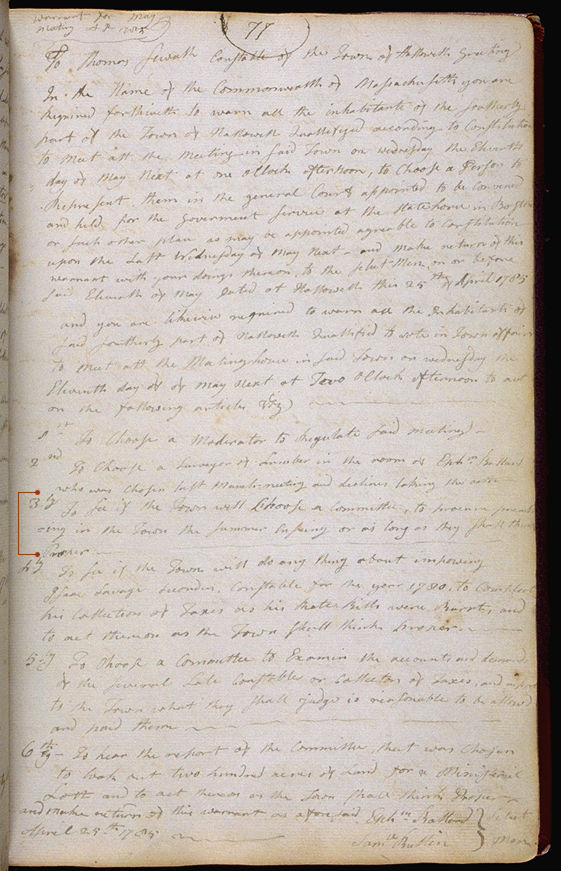 Warrant for May
Meeting at 2 oClk
77
To Thomas Sewall Constable of the Town of Hallowell Greeting
In the Name of the Commonwealth of Massachusetts you are
Required forthwith to warn all the inhabitants of the southerly
part of the Town of Hallowell Quallifyed according to Constitution
to meet att the Meeting in said Town on wednesday the Eleventh
day of May Next at one oClock afternoon, to Choose a Person to
Represent them in the general Court appointed to be Convened
and held for the Government Service at the State house in Boston
or such other plan as may be appointed agreable to Constitution
upon the Last Wednesday of May Next - and make return of this
warrant with your doings thereon, to the select Men, on or before
said Eleventh of May Dated at Hallowell this 25th of April 1785
and you are likewise required to warn all the Inhabitants of
said southerly part of Hallowell Quallifed to vote in Town affairs
to meet att the Meetinghouse in said Town on wednesday the
Eleventh day of of May Next at Two oClock afternoon to act
on the following articles (Viz)
1st To Choose a Moderator to Regulate said meeting -
2nd To Choose a Surveyor of Lumber in the room of Ephm Ballard
who was Chosen last March meeting and declines taking the
3ly To see if the Town will Choose a Committee, to procure preach
-ing in the Town the summer Insuing or as long as they shall think
Proper -
4ly To see if the Town will do any thing about impowing
Isaac Savage secondus, Constable for the year 1780, to Compleat
his Collection of Taxes as his Rates Bills were Burnt, and
to act thereon as the Town shall think Proper -
5ly To Choose a Committee to Examin the accounts and demands
of the several Late Constables or Collectors of Taxes, and report
to the Town what they shall judge is reasonable to be allowed
and paid them
6thly - To hear the report of the Committee, that was Chosen
to look out two hundred acres of Land for a Ministerial
Lott and to act thereon as the Town shall think Proper -
and make return of this warrant as aforesaid Ephm Ballard } Select
April 25th 1785 Saml Bullin } Men